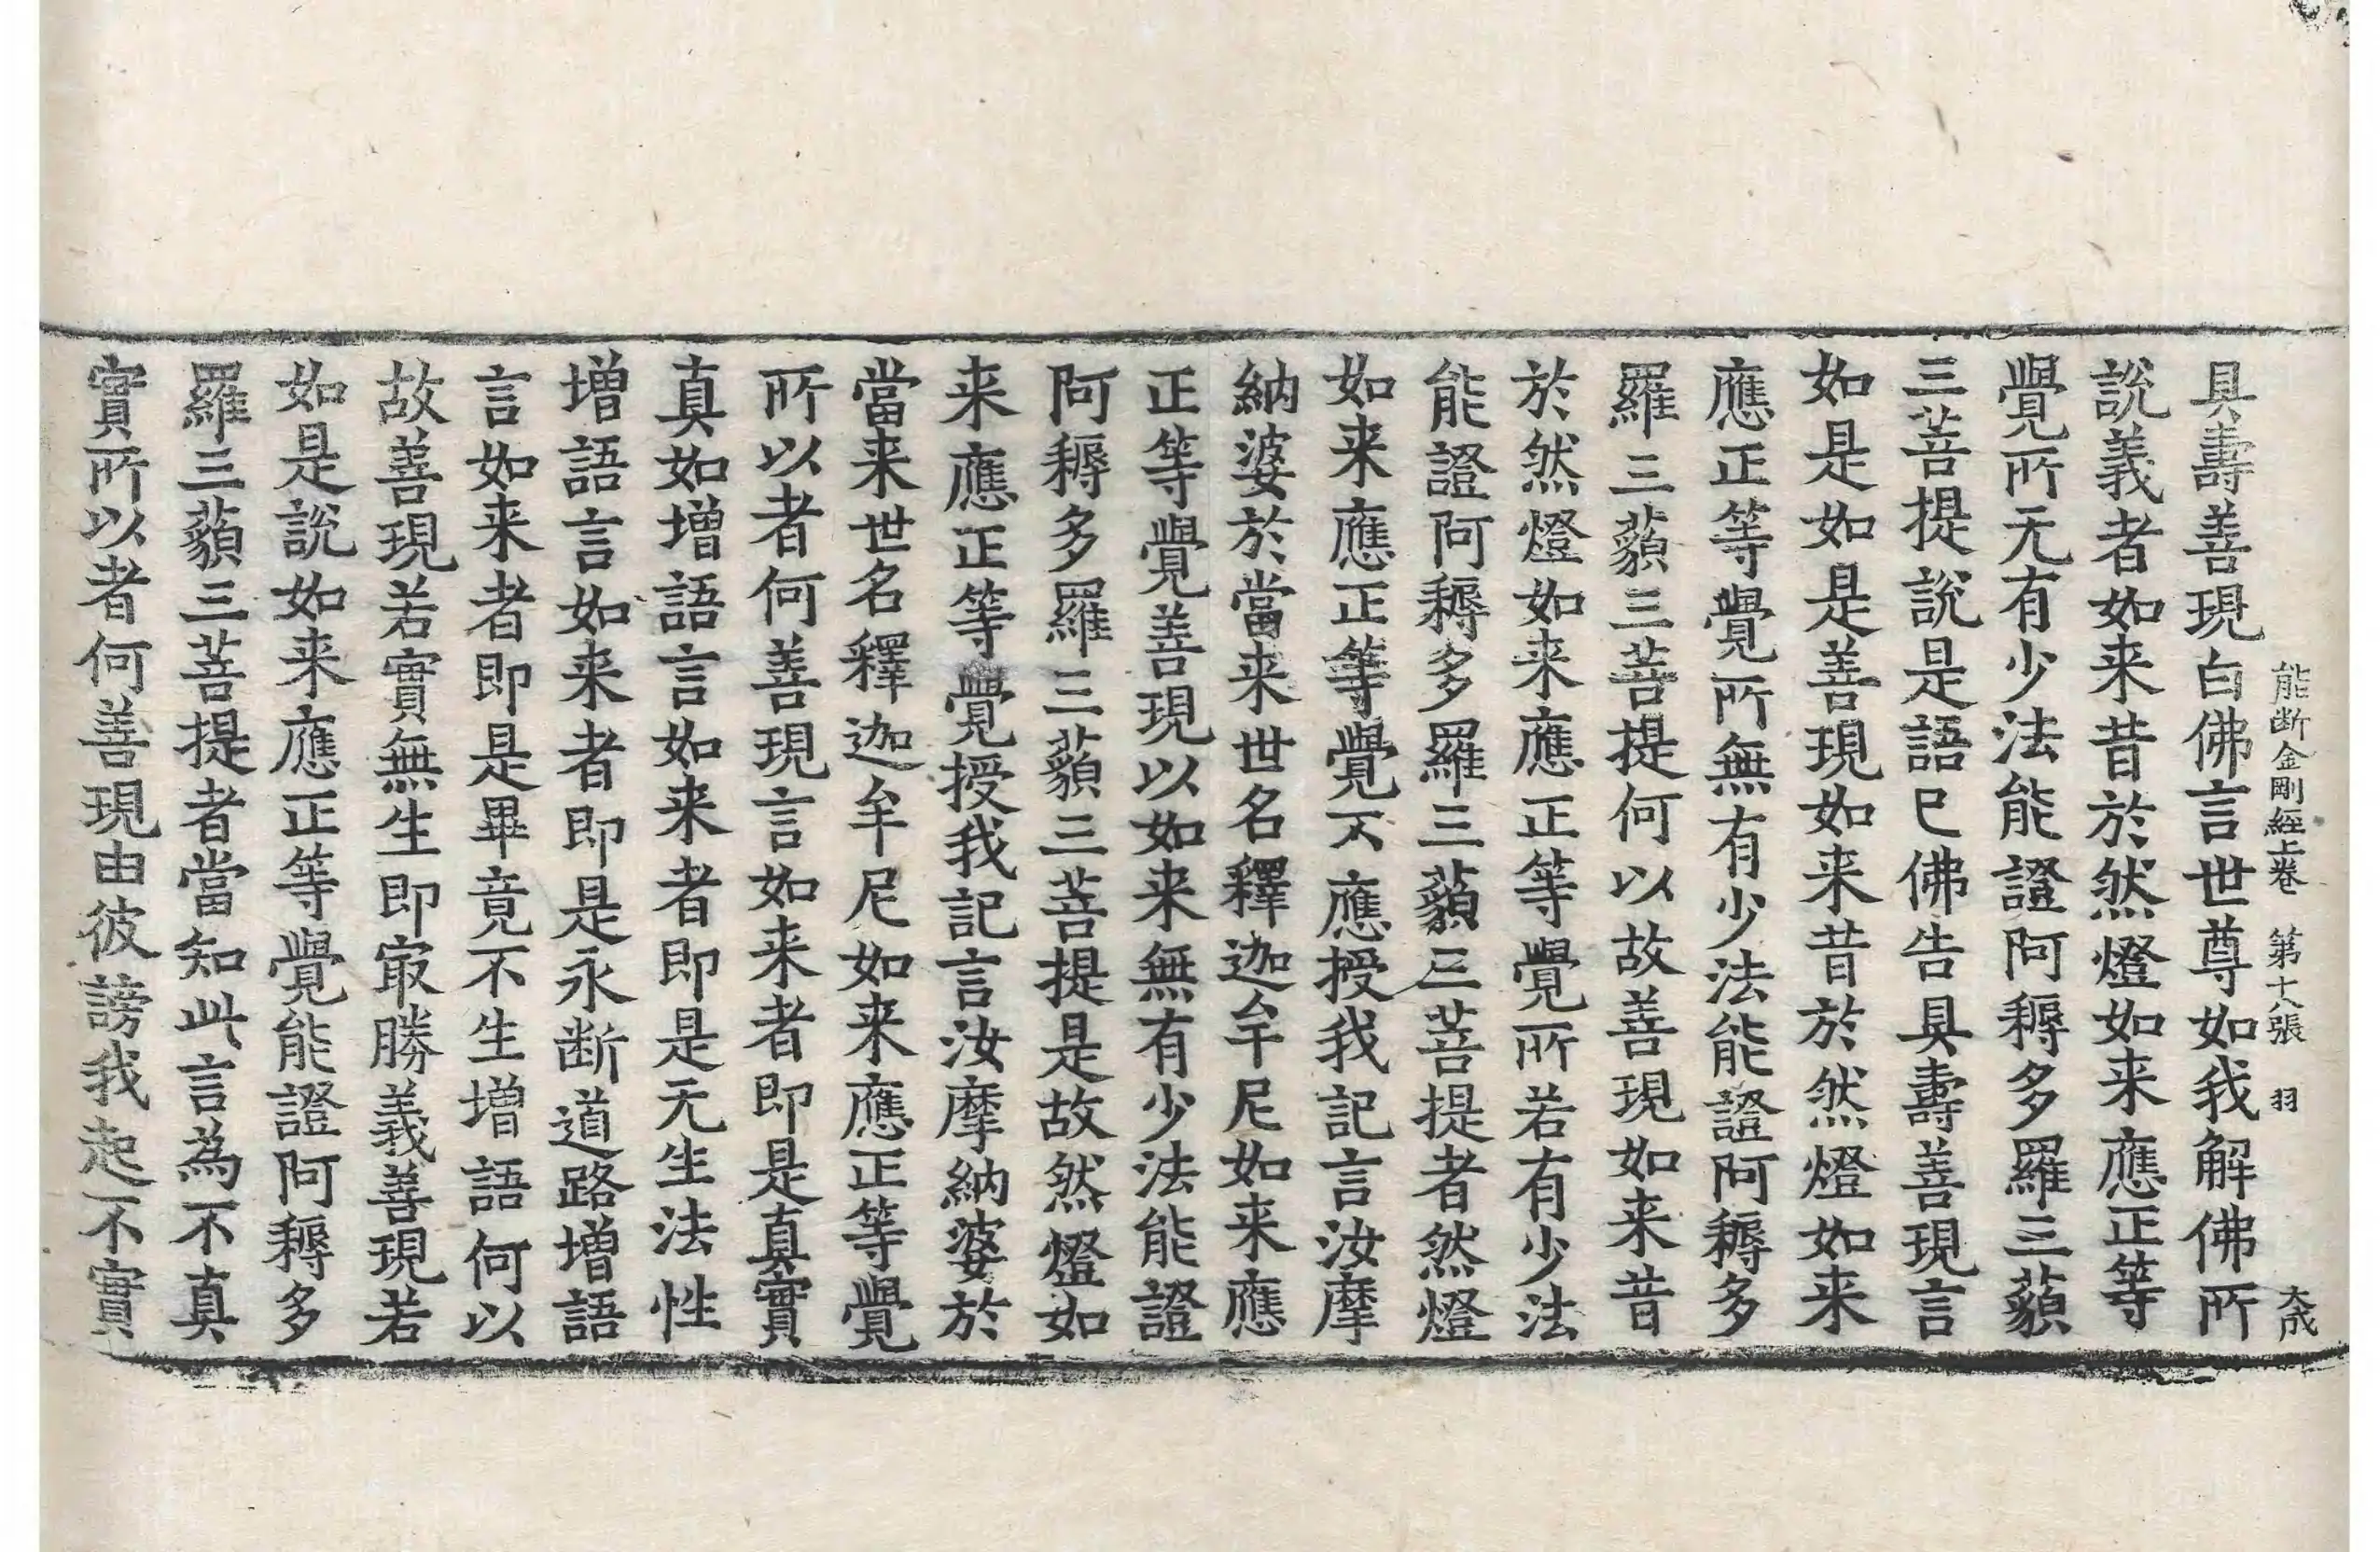 能断金剛經上卷　第十八張　羽　大成
具壽善現白佛言世尊如我解佛所
說義者如来昔於然燈如来應正等
覺所无有少法能證阿耨多羅三藐
三菩提說是語已佛告具壽善現言
如是如是善現如来昔於然燈如来
應正等覺所無有少法能證阿耨多
羅三藐三菩提何以故善現如来昔
於然燈如来應正等覺所若有少法
能證阿耨多羅三藐三菩提者然燈
如来應正等覺不應授我記言汝摩
納婆於當来世名釋迦牟尼如来應
正等覺善現以如来無有少法能證
阿耨多羅三藐三菩提是故然燈如
来應正等覺授我記言汝摩納婆於
當来世名釋迦牟尼如来應正等覺
所以者何善現言如来者即是真實
真如增語言如来者即是无生法性
增語言如来者即是永断道路增語
言如来者即是畢竟不生增語何以
故善現若實無生即㝡勝義善現若
如是說如来應正等覺能證阿耨多
羅三藐三菩提者當知此言為不真
實所以者何善現由彼謗我起不實